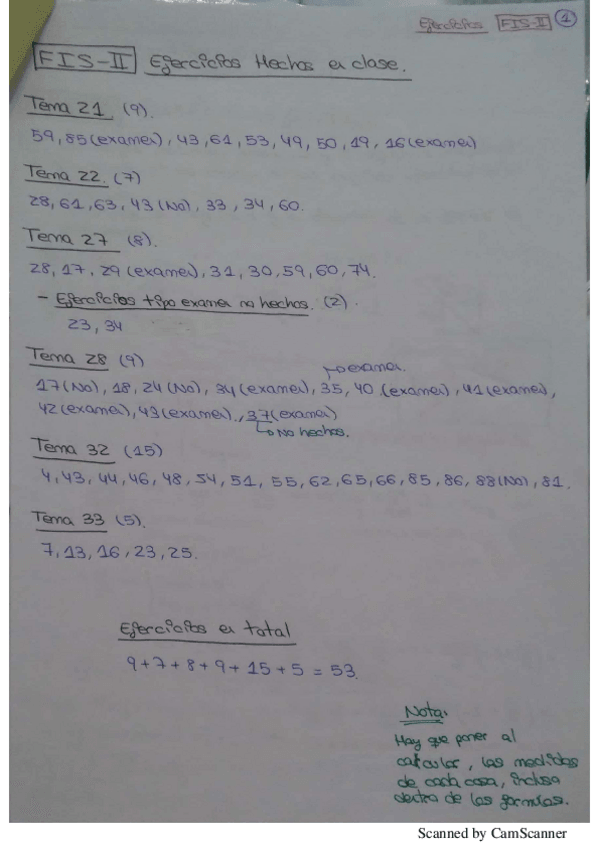 Ejercicios FIS-II 1
FIS-II Ejercicios Hechos en clase.
Tema 21 (9).
59, 85 (examen), 43, 61, 53, 49, 50, 19, 16 (examen)
Tema 22. (7)
28, 61, 63, 43 (No), 33, 34, 60.
Tema 27 (8).
28, 17, 29 (examen), 31, 30, 59, 60, 74.
- Ejercicios tipo examen no hechos. (2).
23, 34
Tema 28 (9)
examen.
17 (No), 18, 24 (No), 34 (examen), 35, 40 (examen), 41 (examen),
42 (examen), 43 (examen), 37 (examen)
No hechos.
Tema 32 (15)
4, 43, 44, 46, 48, 54, 51, 55, 62, 65, 66, 85, 86, 88 (No), 81.
Tema 33 (5).
7, 13, 16, 23, 25.
Ejercicios en total
9+7+8+9+15+5 = 53.
Nota.
Hay que poner al
calcular, las medidas
de cada cosa, incluso
dentro de las formulas.
Scanned by CamScanner